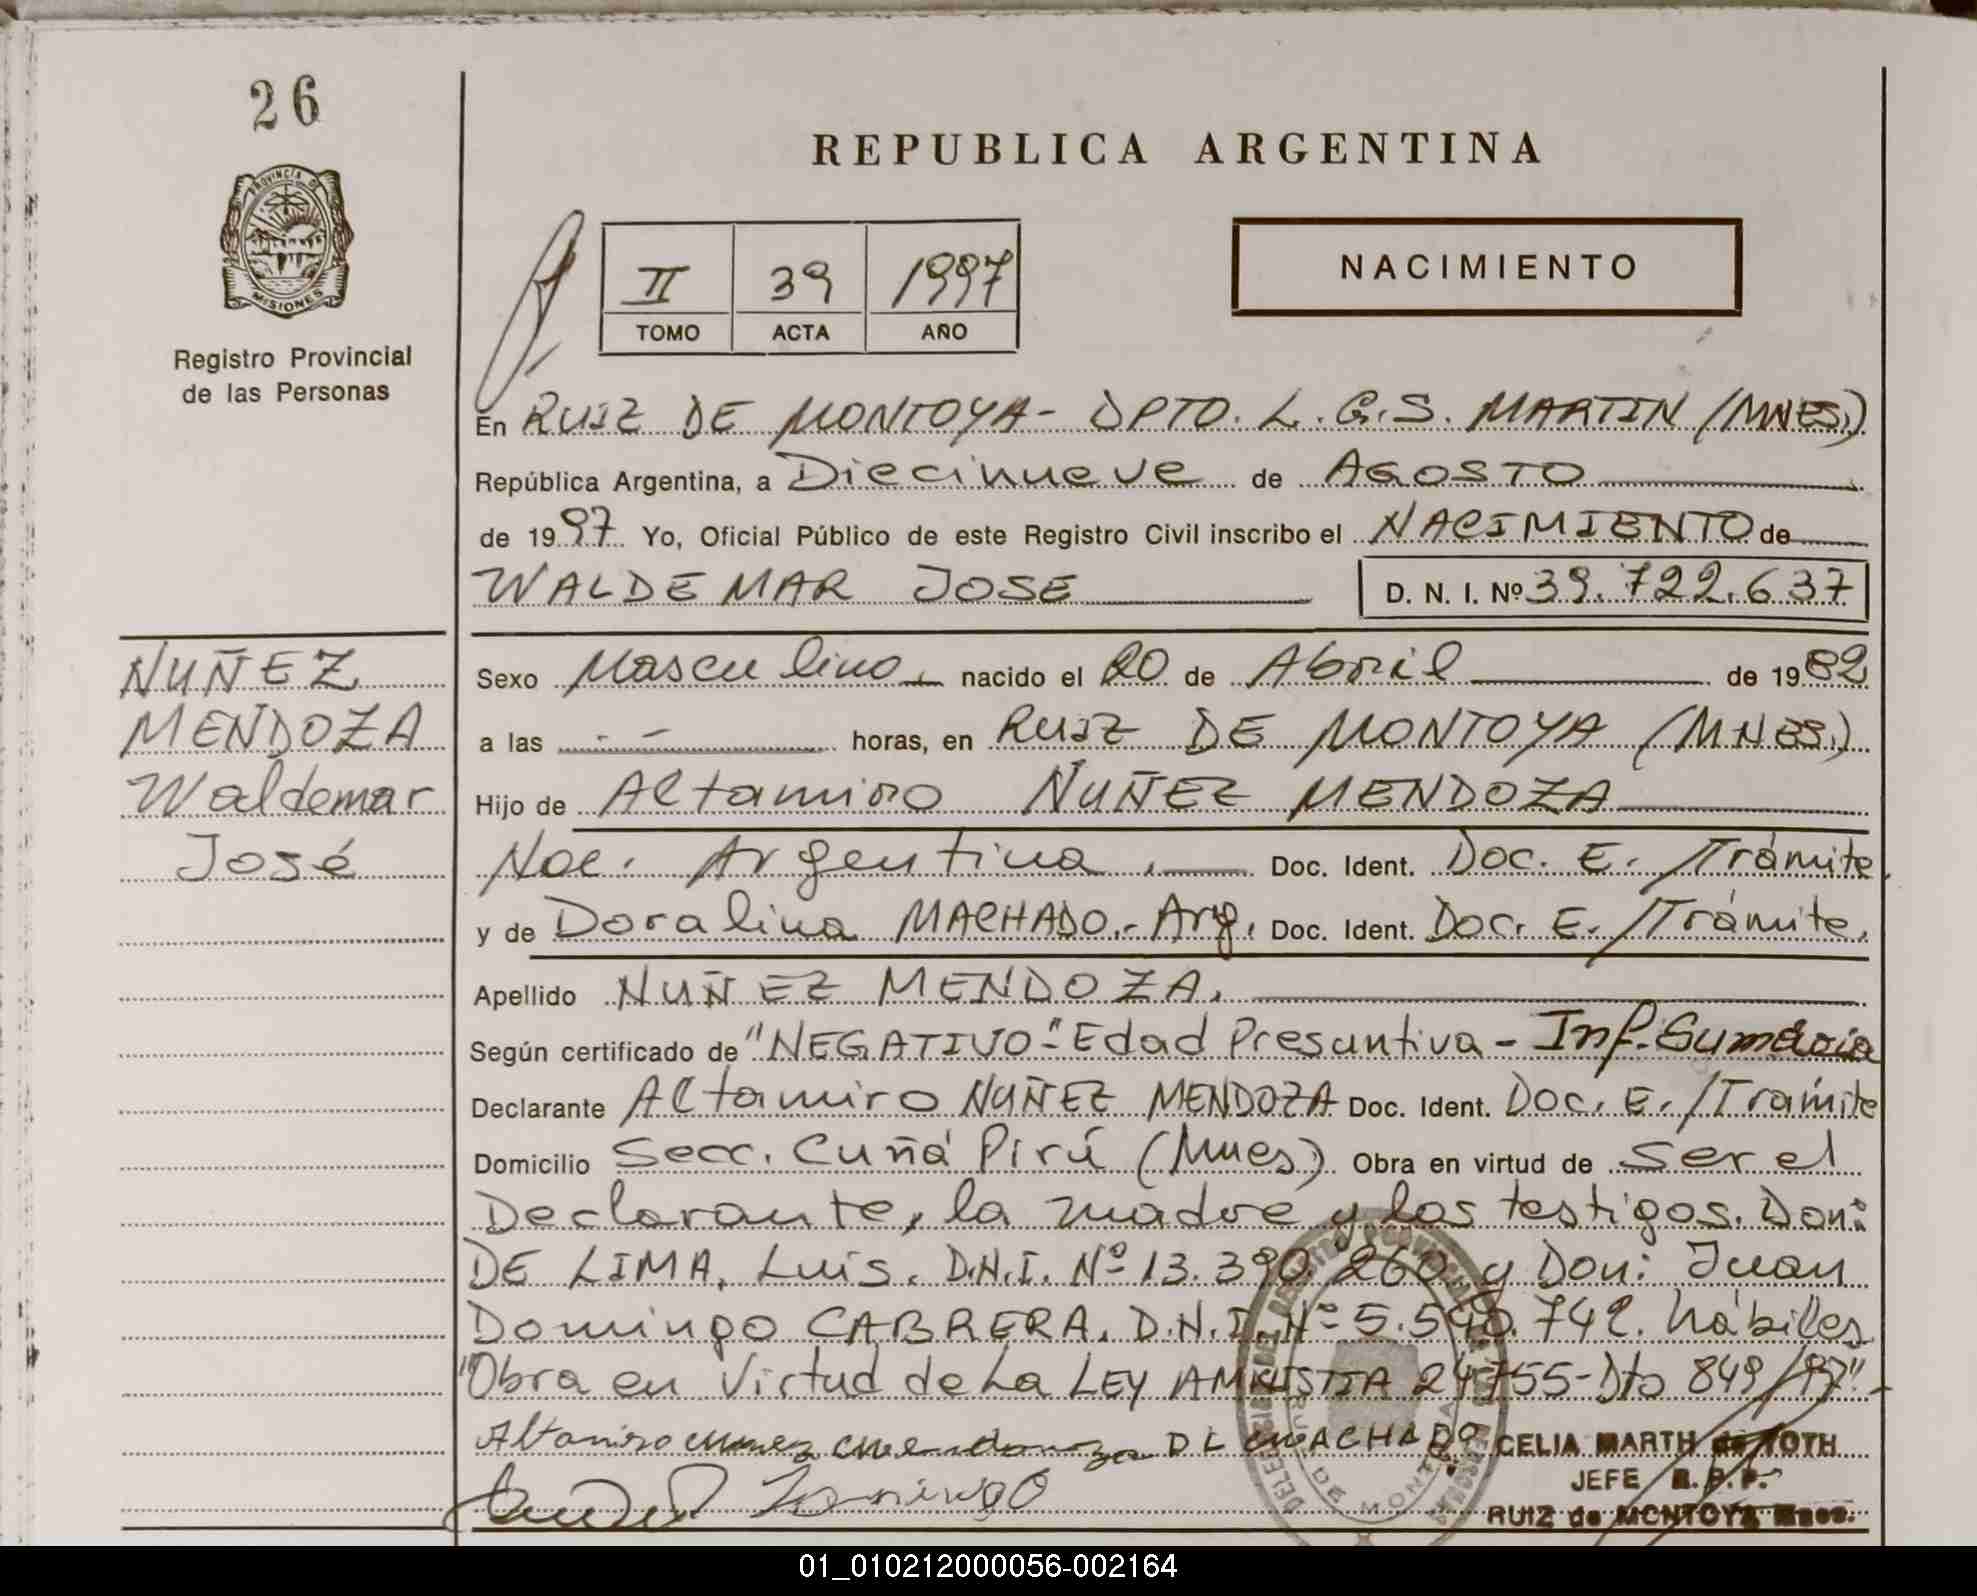 26
PROVINCIA DE
MISIONES
Registro Provincial
de las Personas
REPUBLICA ARGENTINA
II 39 1997
TOMO ACTA AÑO
NACIMIENTO
En RUIZ DE MONTOYA- DPTO. L.G.S. MARTIN (MNES.)
República Argentina, a Diecinueve de AGOSTO
de 1997 Yo, Oficial Público de este Registro Civil inscribo el NACIMIENTO de
WALDEMAR JOSE D. N. I. Nº 39.722.637
NUÑEZ
MENDOZA
Waldemar
José
Sexo Masculino, nacido el 20 de Abril de 1982
a las . - horas, en RUIZ DE MONTOYA (MNES.)
Hijo de Altamiro NUÑEZ MENDOZA
Nac. Argentina, Doc. Ident. Doc. E./Trámite.
y de Doralina MACHADO.- Arg. Doc. Ident. Doc. E./Trámite.
Apellido NUÑEZ MENDOZA.
Según certificado de "NEGATIVO"- Edad Presuntiva - Inf. Sumaria
Declarante Altamiro NUÑEZ MENDOZA Doc. Ident. Doc. E./Tramite
Domicilio Secc. Cuñá Pirú (Mnes) Obra en virtud de ser el
Declarante, la madre y los testigos. Don:
DE LIMA, Luis. D.N.I. Nº 13.390.260 y Don: Juan
Domingo CABRERA. D.N.I. Nº 5.540.742. hábiles
"Obra en Virtud de La LEY AMNISTIA 24755-Dto 849/97".-
Altamiro nunez mendonza D L MACHADO CELIA MARTH de TOTH
JEFE R.P.P.
Domingo RUIZ de MONTOYA Mnes.
01_010212000056-002164